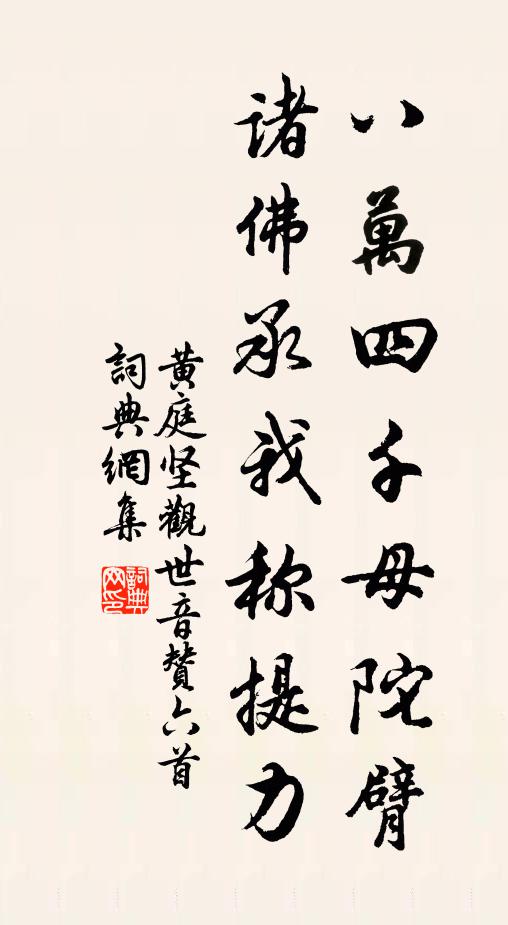 八萬四千母陀臂
諸佛承我称提力
黄庭坚觀世音賛六首
詞典網集
詞典网印